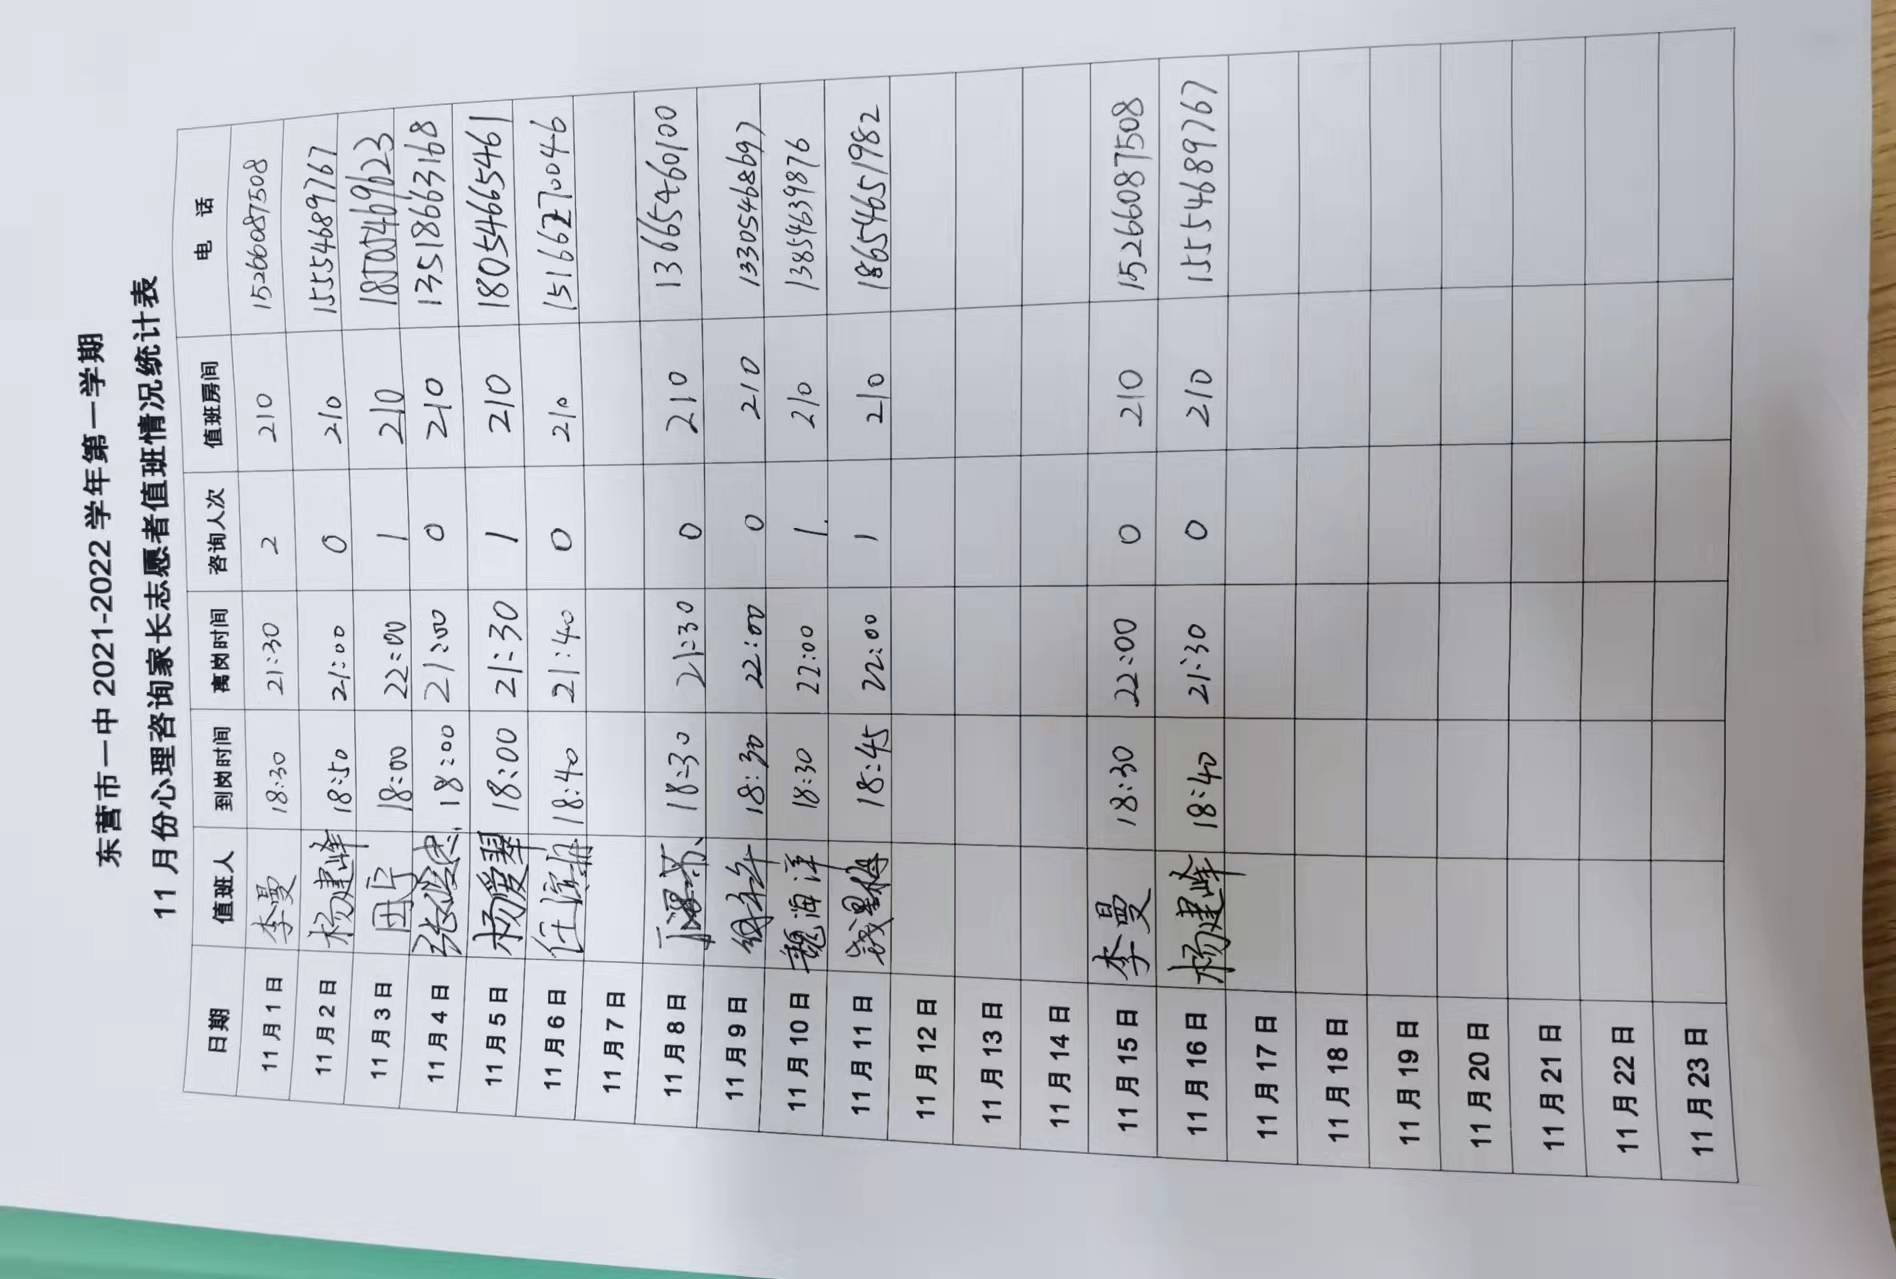 东营市一中 2021-2022 学年第一学期
11 月份心理咨询家长志愿者值班情况统计表
日期 值班人 到岗时间 离岗时间 咨询人次 值班房间 电 话
11 月 1 日 李曼 18:30 21:30 2 210 15266087508
11 月 2 日 杨建峰 18:50 21:00 0 210 15554689767
11 月 3 日 18:00 22:00 1 210 18505469623
11 月 4 日 18:00 21:00 0 210 13518663168
11 月 5 日 杨爱翠 18:00 21:30 1 210 18054666546
11 月 6 日 任滨海 18:40 21:40 0 210 15166270046
11 月 7 日
11 月 8 日 18:30 21:30 0 210 13665460100
11 月 9 日 18:30 22:00 0 210 13305468697
11 月 10 日 魏海洋 18:30 22:00 1 210 13854639876
11 月 11 日 18:45 22:00 1 210 18654651982
11 月 12 日
11 月 13 日
11 月 14 日
11 月 15 日 李曼 18:30 22:00 0 210 15266087508
11 月 16 日 杨建峰 18:40 21:30 0 210 15554689767
11 月 17 日
11 月 18 日
11 月 19 日
11 月 20 日
11 月 21 日
11 月 22 日
11 月 23 日